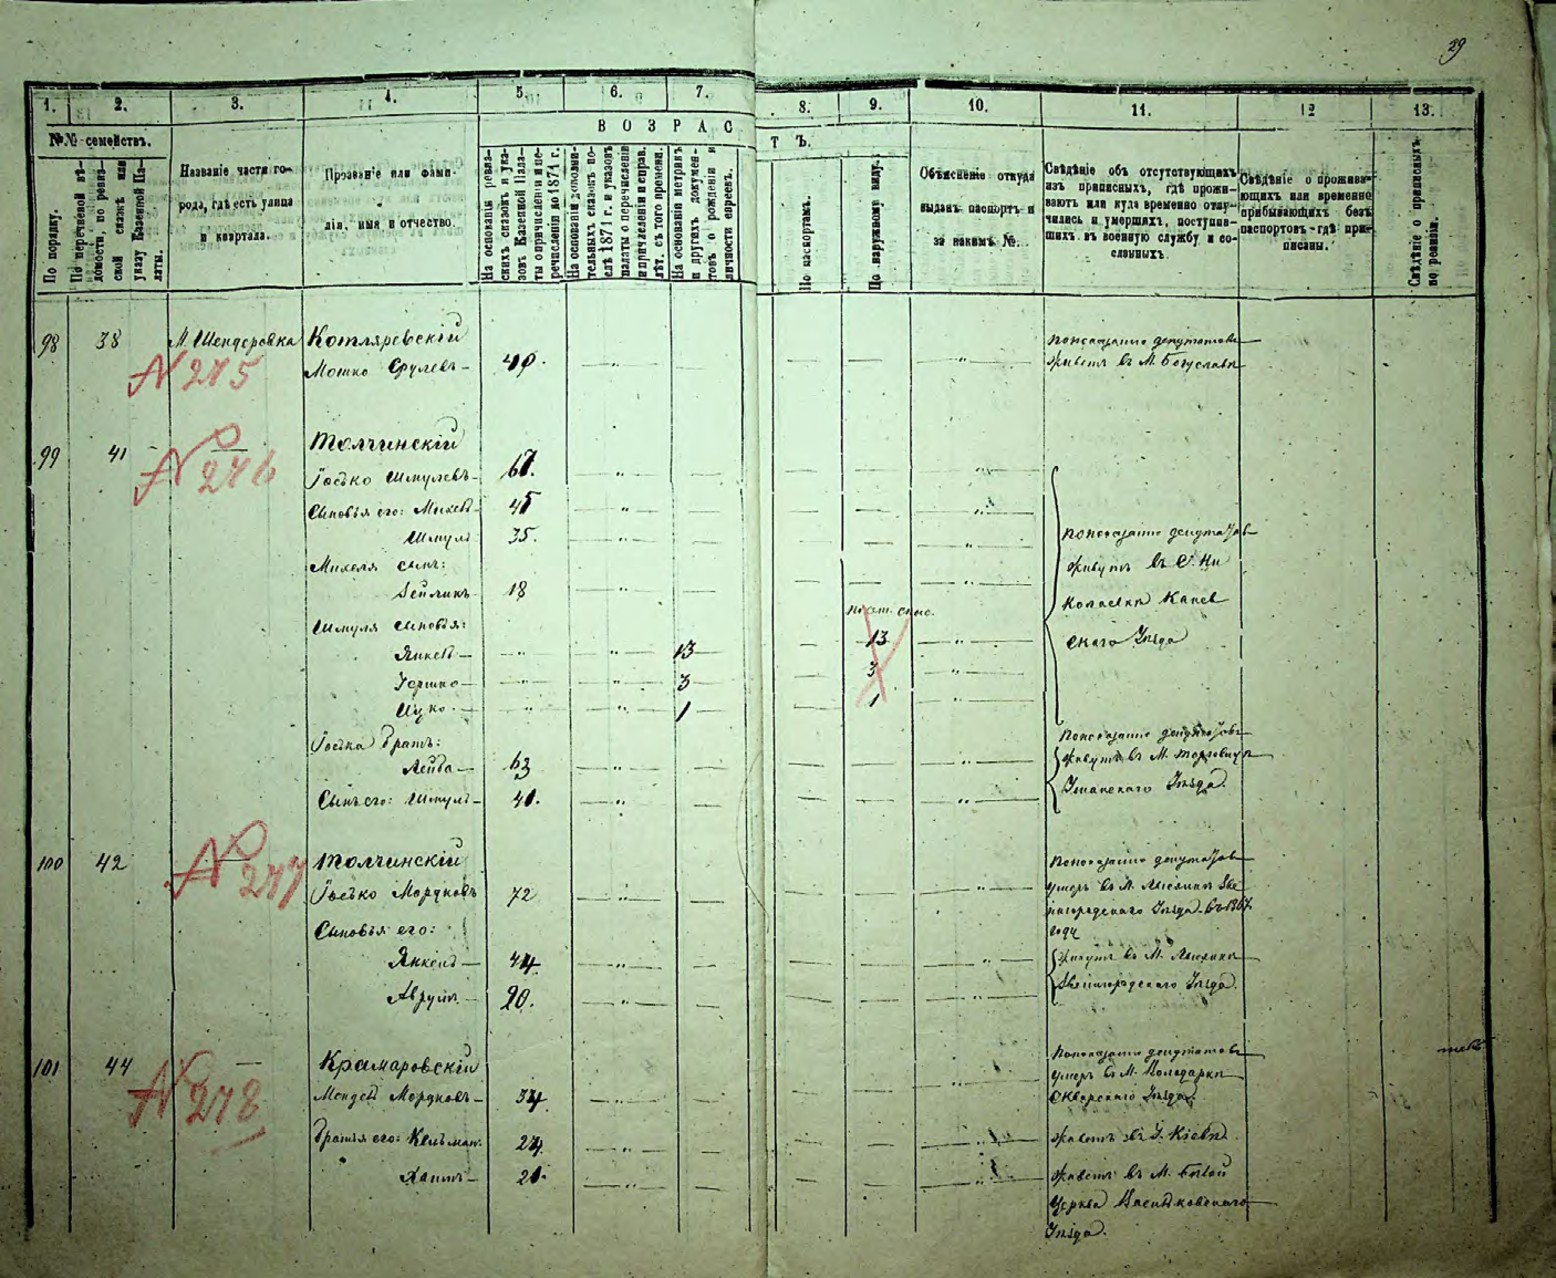 29
1. 2. 3. 4. 5. 6. 7. 8. 9. 10. 11. 12 13.
№№ семействъ.
В О З Р А С Т Ъ.
По порядку.
По перечневой вѣдомости, по ревизской сказкѣ или указу Казенной Палаты.
Названіе части города, гдѣ есть улица и квартала.
Прозваніе или фамилія, имя и отчество.
На основаніи ревизскихъ сказокъ и указовъ Казенной Палаты о причисленіи и перечисленіи до 1871 г.
На основаніи дополнительныхъ сказокъ послѣ 1871 г. и указовъ палаты о перечисленіи и причисленіи и справ. лѣт. съ того времени.
На основаніи метрикъ и другихъ документовъ о рожденіи и личности евреевъ.
По паспортамъ.
По наружному виду.
Объясненіе откуда выданъ паспортъ и за какимъ №.
Свѣдѣніе объ отсутствующихъ изъ приписныхъ, гдѣ проживаютъ или куда временно отлучились и умершихъ, поступившихъ въ военную службу и сосланныхъ.
Свѣдѣніе о проживающихъ или временно прибывающихъ безъ паспортовъ-гдѣ приписаны.
Свѣдѣніе о приписныхъ по ревизіи.
98 38 М. Шендеровка Котляревскій показанію депутатовъ
№ 275 Мошко Срулевъ 49. живетъ въ М. Богуславѣ
99 41 Толчинскій
№ 276 Іосько Шмулевъ 67.
Сыновья его: Михель 45
Шмуль 35. показанію депутатовъ
Михеля сынъ: живутъ въ С. Ни
Зейликъ 18
колаевкѣ Канев
Шмуля сыновья:
Янкель 13 13 скаго Уѣзда
Гершко 3 3
Ицко 1 1
Іоська братъ: показанію депутатовъ
Лейба 63 живутъ въ М. Торговицѣ
Сынъ его: Шмуль 41. Уманскаго Уѣзда.
100 42 Толчинскій показанію депутатовъ
№ 277 Іосько Мордковъ 72 умеръ въ М. Лысянкѣ Зве
нигородскаго Уѣзда въ 1867
Сыновья его: году
Янкель 44. живутъ въ М. Лысянкѣ
Аврумъ 20. Звенигородскаго Уѣзда.
101 44 Крамаровскій показанію депутатовъ
№ 278 Мендель Мордковъ 34. умеръ въ М. Володаркѣ
Сквирскаго Уѣзда.
Братья его: Кельман. 24. живетъ въ Г. Кіевѣ
Хаимъ 21. живетъ въ М. Бѣлой
Церквѣ Васильковскаго
Уѣзда.